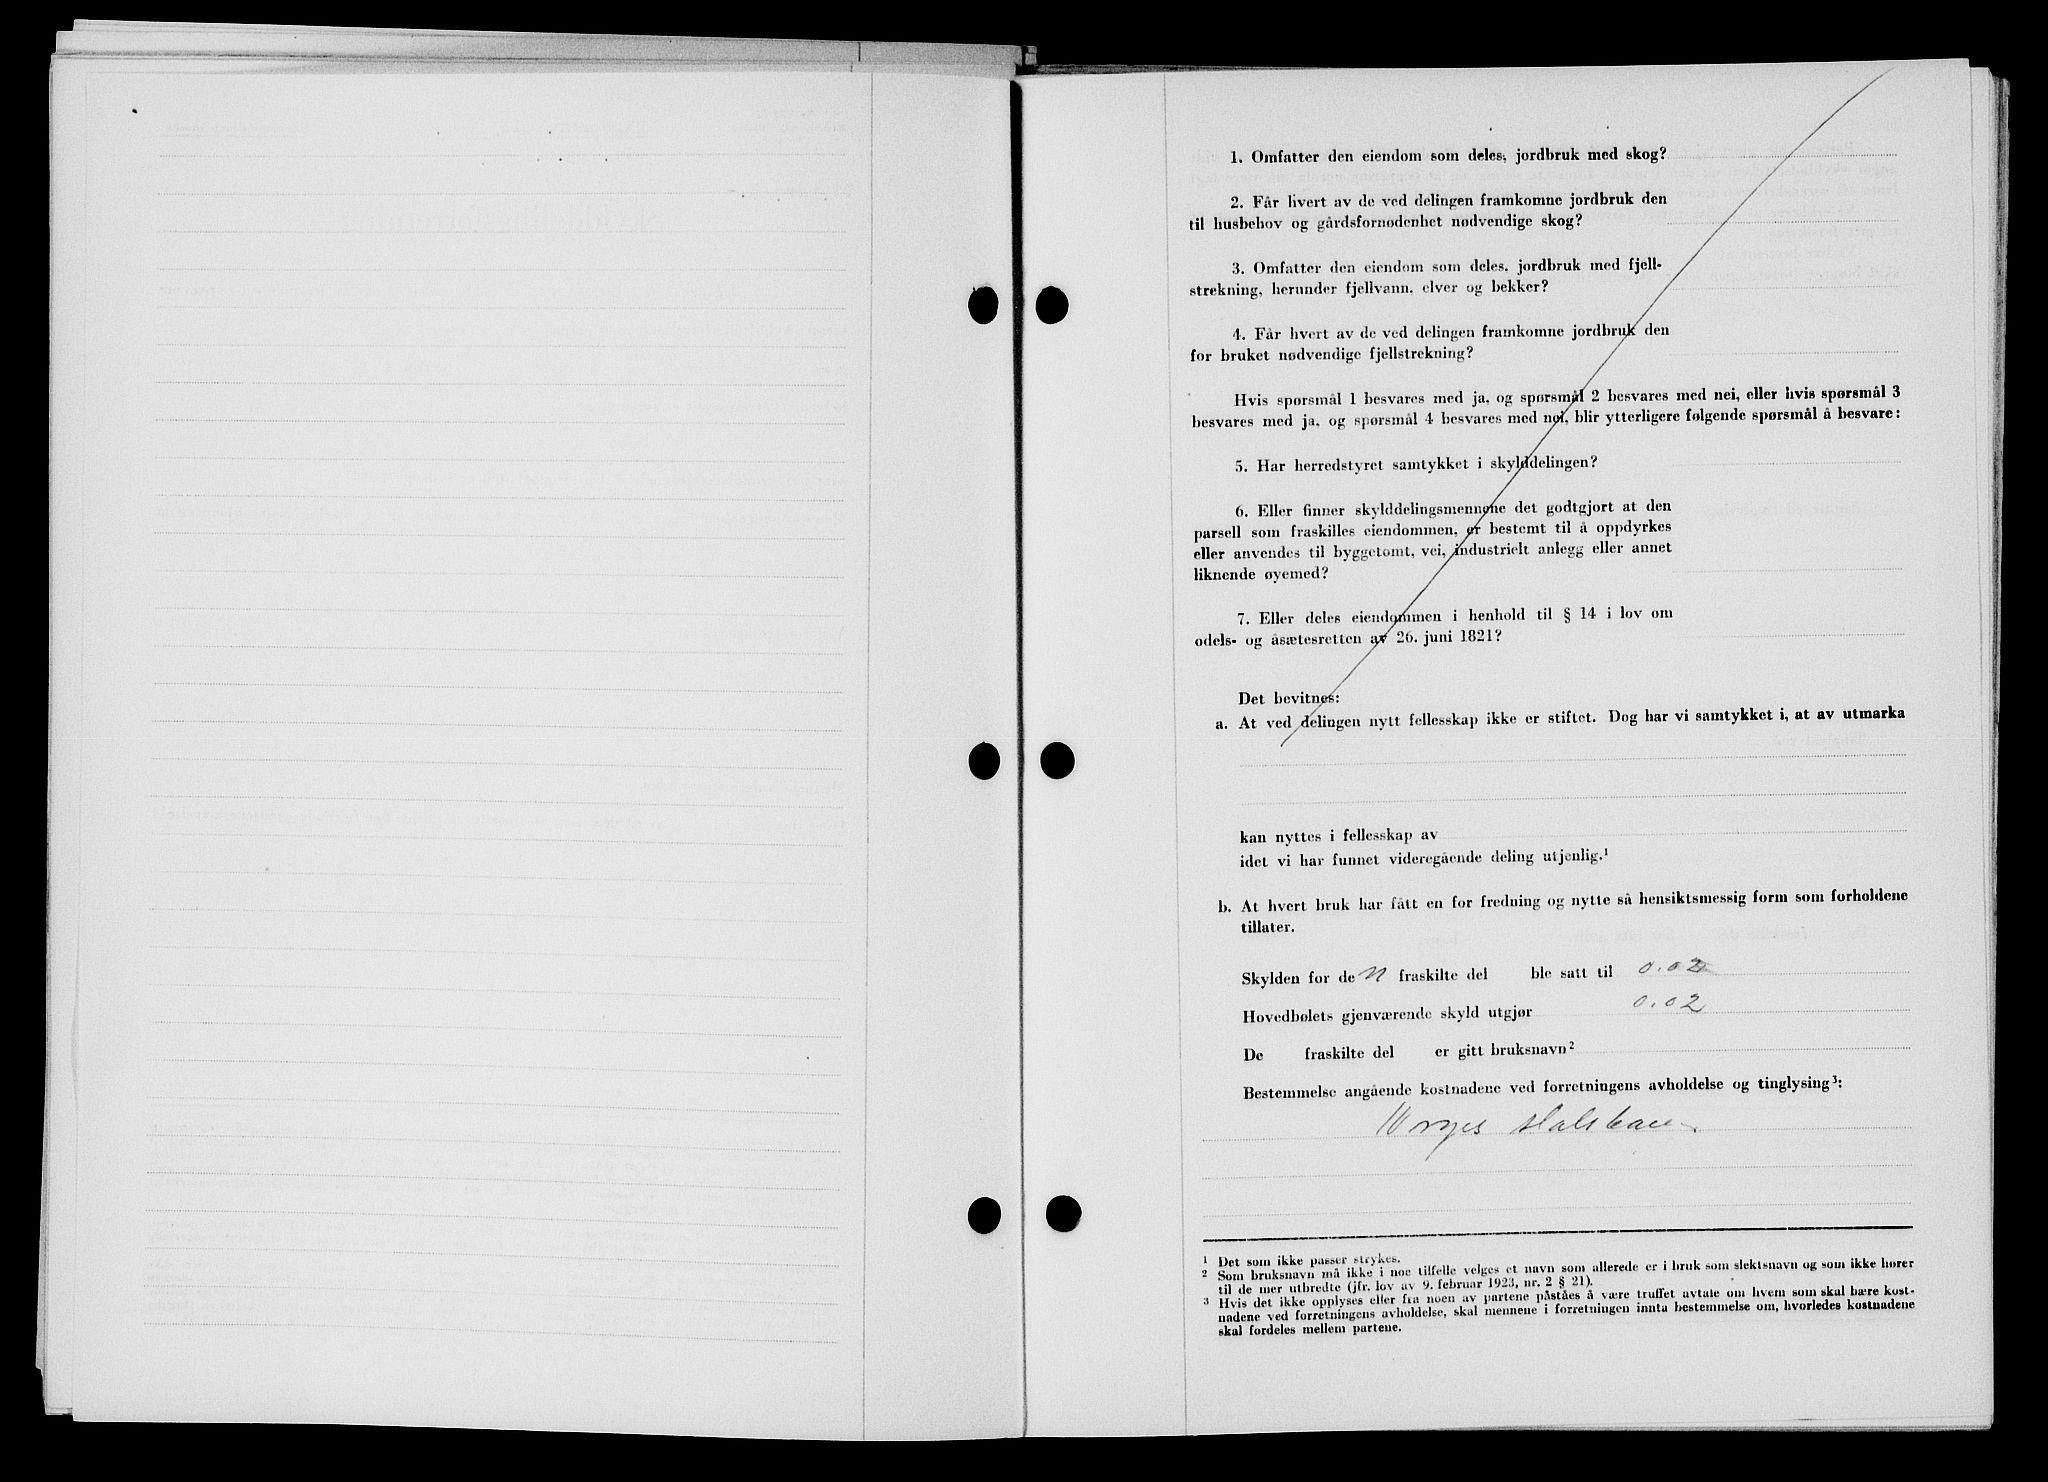 1. Omfatter den eiendom som deles, jordbruk med skog?
2. Får hvert av de ved delingen framkomne jordbruk den
til husbehov og gårdsfornødenhet nødvendige skog?
3. Omfatter den eiendom som deles, jordbruk med fjell-
strekning, herunder fjellvann, elver og bekker?
4. Får hvert av de ved delingen framkomne jordbruk den
for bruket nødvendige fjellstrekning?
Hvis spørsmål 1 besvares med ja, og spørsmål 2 besvares med nei, eller hvis spørsmål 3
besvares med ja, og spørsmål 4 besvares med nei, blir ytterligere følgende spørsmål å besvare:
5. Har herredstyret samtykket i skylddelingen?
6. Eller finner skylddelingsmennene det godtgjort at den
parsell som fraskilles eiendommen, er bestemt til å oppdyrkes
eller anvendes til byggetomt, vei, industrielt anlegg eller annet
liknende øyemed?
7. Eller deles eiendommen i henhold til § 14 i lov om
odels- og åsætesretten av 26. juni 1821?
Det bevitnes:
a. At ved delingen nytt fellesskap ikke er stiftet. Dog har vi samtykket i, at av utmarka
kan nyttes i fellesskap av
idet vi har funnet videregående deling utjenlig.1
b. At hvert bruk har fått en for fredning og nytte så hensiktsmessig form som forholdene
tillater.
Skylden for de n fraskilte del ble satt til 0.02
Hovedbølets gjenværende skyld utgjør 0.02
De fraskilte del er gitt bruksnavn2
Bestemmelse angående kostnadene ved forretningens avholdelse og tinglysing3:
Norges Statsbaner
1 Det som ikke passer strykes.
2 Som bruksnavn må ikke i noe tilfelle velges et navn som allerede er i bruk som slektsnavn og som ikke hører
til de mer utbredte (jfr. lov av 9. februar 1923, nr. 2 § 21).
3 Hvis det ikke opplyses eller fra noen av partene påståes å være truffet avtale om hvem som skal bære kost-
nadene ved forretningens avholdelse, skal mennene i forretningen innta bestemmelse om, hvorledes kostnadene
skal fordeles mellem partene.